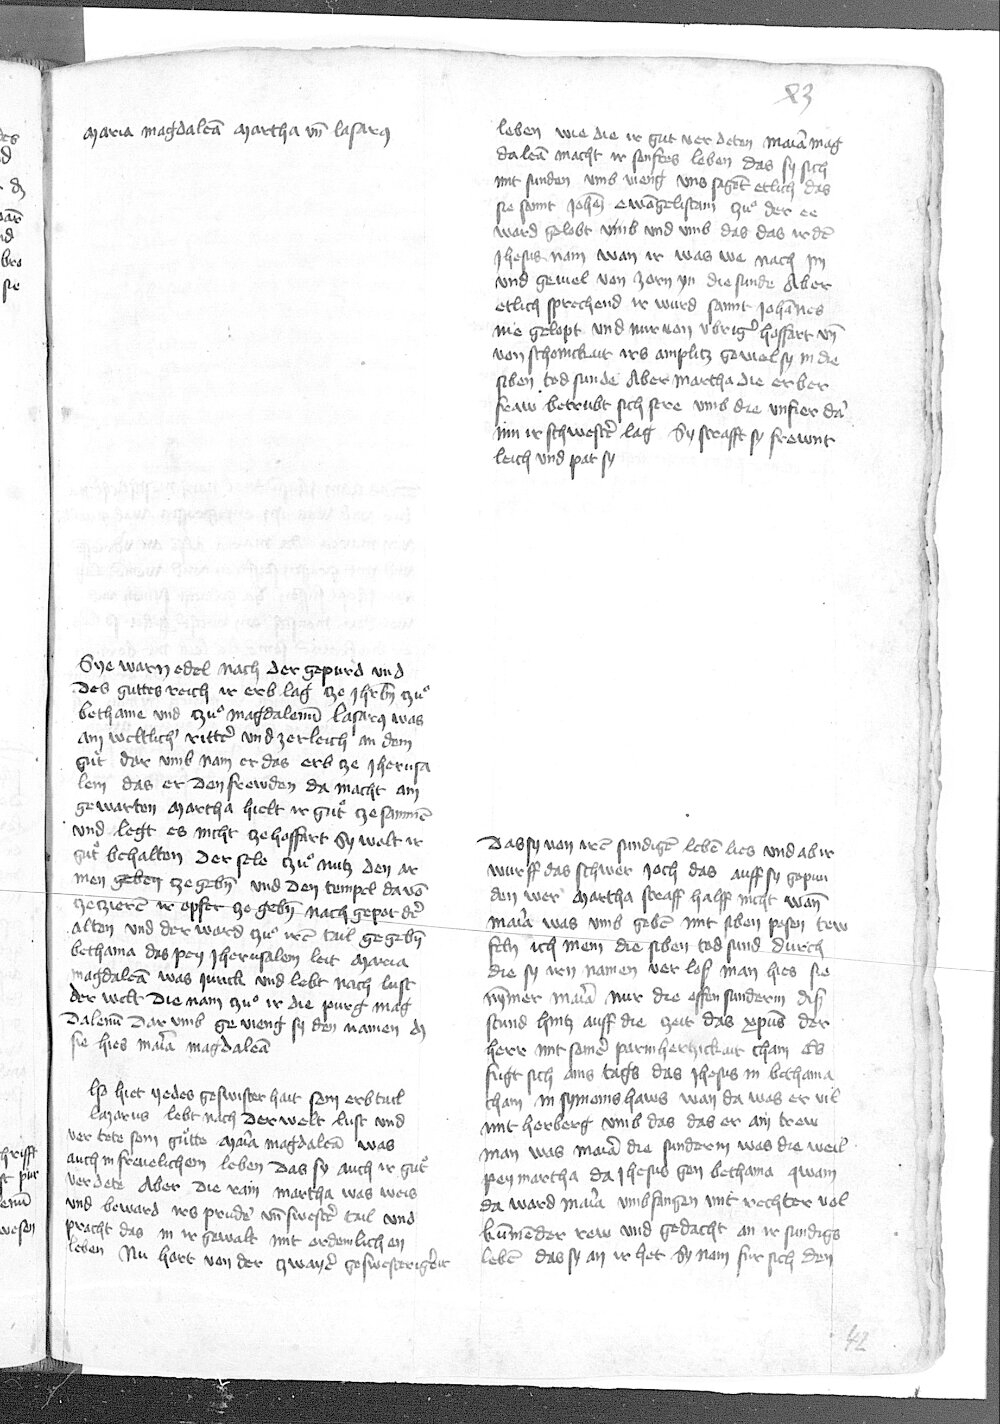 83
Maria magdaleā Martha vn̄ lasarꝫ
Sye warn edel nach der gepurd vnd
des guttes reich ir erb lag tze Jhrlm̄ tzuͦ
bethanie vnd tzuͦ magdalenū lasarꝫ was
ain weltlich' ritter vnd zerleich an dem
guͤt dar vmb nam er das erb tze Jherusa
lem das er den frewden da macht an
gewarten Martha hielt ir guͤt ze samnē
vnd legt es nicht ze hoffart Sy wolt ir
guͤt behalten der sele tzuͦ nutz den ar
men geben tze gebn̄ vnd den tempel da vō
zetzierē ir opfer ze gebn̄ nach gepot dē
alten vnd der ward tzuͦ irē tail gegebn̄
bethania das pey Jherusalem leit Maria
magdaleā was Junck vnd lebt nach lust
der welt Die nam tzuͦ ir die purg mag
dalenū Dar vmb gevieng sy den namen dz
sie hies maīa magdaleā
lso hiet yedes geswisterhait sein erbtail
lazarus lebt nach der welt lust vnd
vertete sein guͤtte Maīa magdaleā was
auch in frevelichem leben das sy auch ir guͤt
verdete Aber die rain martha was weis
vnd beward irs prude' vn̄ swester tail vnd
pracht das in ir gewalt mit ordenlichen
leben Nu hort von der tzwayer geswesterigt
leben wie die ir gut verdeten maīa mag
daleā macht ir senftes leben das sy sich
mit sunden vmb vieng vns sagēt etlich das
sie sannt Johēn ewāgelistam tzuͦ der ee
ward gelobt vmb vnd vmb das das ir dē
Jhesus nam wan ir was we nach im
vnd geviel von zorn yn die sunde Aber
etlich sprechend ir wurd sannt Johānes
nie gelopt vnd nur von vbrig' hoffart vn̄
von schonckait irs amplitz geviel sy in die
siben tod sunde Aber martha die erber
fraw betrubt sich sere vmb die vnfier da'
inn ir swester lag Sy strafft sy frewnt
leich vnd pat sy
Das sy von irē sundigē lebē lies vnd ab ir
wurff das schwer Joch das auff sy gepun
den wer Martha straff halff nicht wan̄
maīa was vmb gebē mit siben posen tew
feln ich mein die siben tod sund durch
die sy irn namen verlos man hies sie
nymer maīa nur die offen sunderin dis
stund hintz auff die zeit das xpūs der
herr mit seiner parmhertzickait cham Es
fugt sich ains tags das Jhesus in bethania
cham in symonis haws wan da was er vil
mit herberg vmb das das er ain trew
man was maīa die sunderin was die weil
pey martha da Jhesus gen bethania qwam
da ward maīa vmbfangen mit rechter vol
kūmēder rew vnd gedacht an ir sundigs
lebē das sy an ir het Sy nam für sich den
42